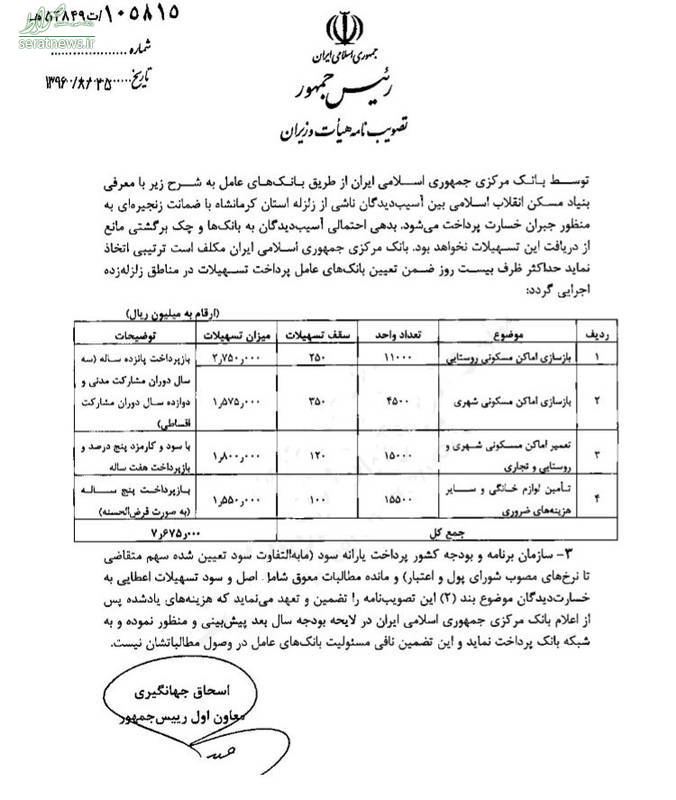 ۱۰۵۸۱۵/ت۵۴۸۴۹هـ
صراط
seratnews.ir
شماره
تاریخ ۱۳۹۶/۸/۲۵
جمهوری اسلامی ایران
رئیس جمهور
تصویب نامه هیأت وزیران
توسط بانک مرکزی جمهوری اسلامی ایران از طریق بانک‌های عامل به شرح زیر با معرفی
بنیاد مسکن انقلاب اسلامی بین آسیب‌دیدگان ناشی از زلزله استان کرمانشاه با ضمانت زنجیره‌ای به
منظور جبران خسارت پرداخت می‌شود. بدهی احتمالی آسیب‌دیدگان به بانک‌ها و چک برگشتی مانع
از دریافت این تسهیلات نخواهد بود. بانک مرکزی جمهوری اسلامی ایران مکلف است ترتیبی اتخاذ
نماید حداکثر ظرف بیست روز ضمن تعیین بانک‌های عامل پرداخت تسهیلات در مناطق زلزله‌زده
اجرایی گردد:
(ارقام به میلیون ریال)
ردیف موضوع تعداد واحد سقف تسهیلات میزان تسهیلات توضیحات
۱ بازسازی اماکن مسکونی روستایی ۱۱۰۰۰ ۲۵۰ ۲٫۷۵۰٫۰۰۰ بازپرداخت پانزده ساله (سه
سال دوران مشارکت مدنی و
۲ بازسازی اماکن مسکونی شهری ۴۵۰۰ ۳۵۰ ۱٫۵۷۵٫۰۰۰ دوازده سال دوران مشارکت
اقساطی)
۳ تعمیر اماکن مسکونی شهری و
روستایی و تجاری ۱۵۰۰۰ ۱۲۰ ۱٫۸۰۰٫۰۰۰ با سود و کارمزد پنج درصد و
بازپرداخت هفت ساله
۴ تأمین لوازم خانگی و سایر
هزینه‌های ضروری ۱۵۵۰۰ ۱۰۰ ۱٫۵۵۰٫۰۰۰ بازپرداخت پنج ساله
(به صورت قرض‌الحسنه)
جمع کل ۷٫۶۷۵٫۰۰۰
۳- سازمان برنامه و بودجه کشور پرداخت یارانه سود (مابه‌التفاوت سود تعیین شده سهم متقاضی
تا نرخ‌های مصوب شورای پول و اعتبار) و مانده مطالبات معوق شامل اصل و سود تسهیلات اعطایی به
خسارت‌دیدگان موضوع بند (۲) این تصویب‌نامه را تضمین و تعهد می‌نماید که هزینه‌های یادشده پس
از اعلام بانک مرکزی جمهوری اسلامی ایران در لایحه بودجه سال بعد پیش‌بینی و منظور نموده و به
شبکه بانک پرداخت نماید و این تضمین نافی مسئولیت بانک‌های عامل در وصول مطالباتشان نیست.
اسحاق جهانگیری
معاون اول رییس‌جمهور